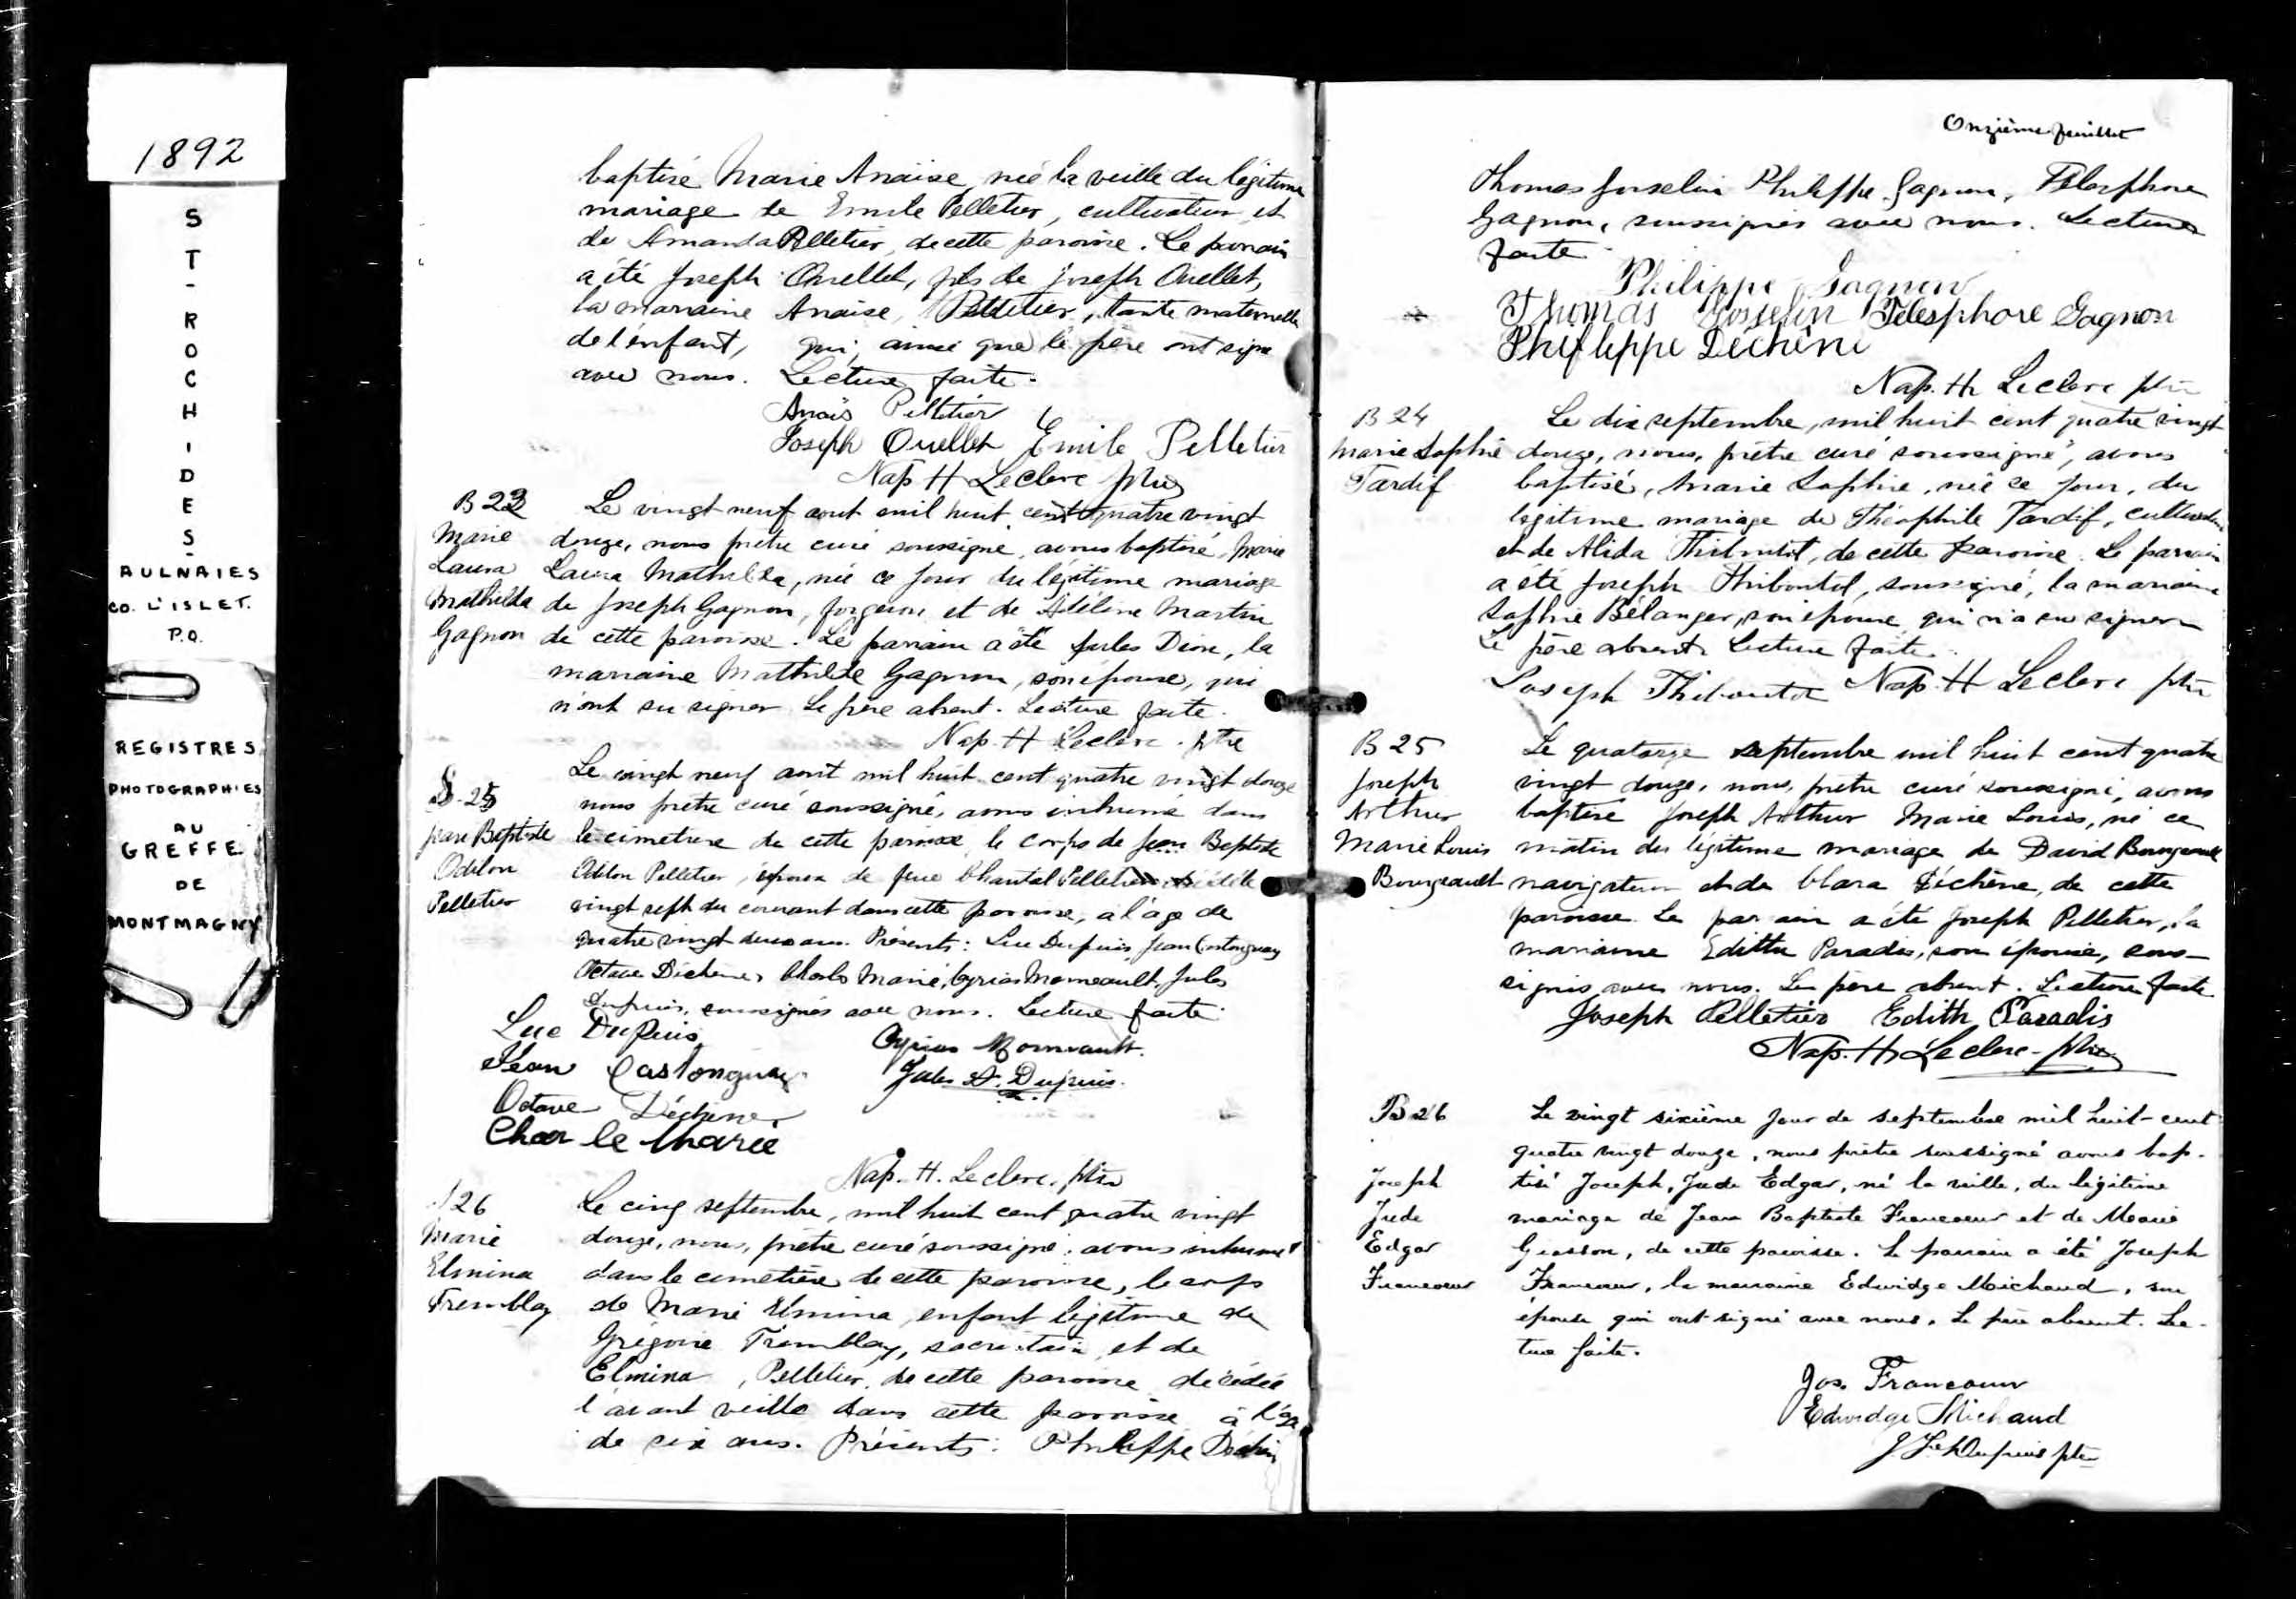 1892
ST-ROCH-DES-
AULNAIES
CO. L'ISLET.
P.Q.
REGISTRES
PHOTOGRAPHIES
AU
GREFFE
DE
MONTMAGNY
baptisé Marie Anaïse, née la veille du légitime
mariage de Emile Pelletier, cultivateur et
de Amanda Pelletier, de cette paroisse. Le parrain
a été Joseph Ouellet, fils de Joseph Ouellet,
la marraine Anaise Pelletier, tante maternelle
de l'enfant, qui, ainsi que le père ont signé
avec nous. Lecture faite.
Anaïs Pelletier
Joseph Ouellet Emile Pelletier
Nap H Leclerc ptre
B 23
Marie
Laura
Mathilda
Gagnon
Le vingt neuf aout mil huit cent quatre vingt
douze, nous prêtre curé soussigné, avons baptisé, Marie
Laura Mathilda, née ce jour du légitime mariage
de Joseph Gagnon, forgeron, et de Adéline Martin
de cette paroisse. Le parrain a été Jules Dion, la
marraine Mathilde Gagnon, son épouse, qui
n'ont su signer. Le père absent. Lecture faite.
Nap. H Leclerc. ptre
S. 25
Jean Baptiste
Odilon
Pelletier
Le vingt neuf aout mil huit cent quatre vingt douze
nous prêtre curé soussigné, avons inhumé dans
le cimetière de cette paroisse le corps de Jean Baptiste
Odilon Pelletier, époux de feue Chantal Pelletier décédé le
vingt sept du courant dans cette paroisse, à l'age de
quatre vingt deux ans. Présents: Luc Dupuis, Jean Castonguay
Octave Dechêne, Charles Marié, Cyrias Morneault, Jules
Dupuis, soussignés avec nous. Lecture faite.
Luc DuPuis Cyrias Morneault.
Jean Castonguay Jules A. Dupuis.
Octave Déchêne
Char le Marié
Nap. H. Leclerc. ptre
S 26
Marie
Elmina
Tremblay
Le cinq septembre, mil huit cent quatre vingt
douze, nous, prêtre curé soussigné, avons inhumé
dans le cimetière de cette paroisse, le corps
de Marie Elmina, enfant légitime de
Grégoire Tremblay, sacristain, et de
Elmina Pelletier, de cette paroisse décédée
l'avant veille dans cette paroisse à l'age
de six ans. Présents: Philippe Déchêne
Onzième feuillet
Thomas Josselin Philippe Gagnon, Télesphore
Gagnon, soussignés avec nous. Lecture
faite.
Philippe Gagnon
Thomas Gosselin Télesphore Gagnon
Philippe Dechêne
Nap. H. Leclerc ptre
B 24
Marie Sophie
Tardif
Le dix septembre, mil huit cent quatre vingt
douze, nous, prêtre curé soussigné, avons
baptisé, Marie Sophie, née ce jour, du
légitime mariage de Théophile Tardif, cultivateur
et de Alida Thiboutot, de cette paroisse. Le parrain
a été Joseph Thiboutot, soussigné, la marraine
Sophie Bélanger, son épouse qui n'a su signer
Le père absent. Lecture faite.
Joseph Thiboutot Nap. H Leclerc ptre
B 25
Joseph
Arthur
Marie Louis
Bourgeault
Le quatorze septembre mil huit cent quatre
vingt douze, nous, prêtre curé soussigné, avons
baptisé Joseph Arthur Marie Louis, né ce
matin du légitime mariage de David Bourgeault
navigateur et de Clara Déchêne, de cette
paroisse. Le parrain a été Joseph Pelletier, la
marraine Edithe Paradis, son épouse, sous-
signés avec nous. Le père absent. Lecture faite
Joseph Pelletier Edith Paradis
Nap. H Leclerc ptre
B 26
Joseph
Jude
Edgar
Francoeur
Le vingt sixième jour de septembre mil huit-cent
quatre vingt douze, nous prêtre soussigné avons bap-
tisé Joseph, Jude Edgar, né la veille, du légitime
mariage de Jean Baptiste Francoeur et de Marie
Grasson, de cette paroisse. Le parrain a été Joseph
Francoeur, la marraine Edwidge Michaud, son
épouse qui ont signé avec nous. Le père absent. Lec-
ture faite.
Jos. Francoeur
Edwidge Michaud
Dupuis ptre